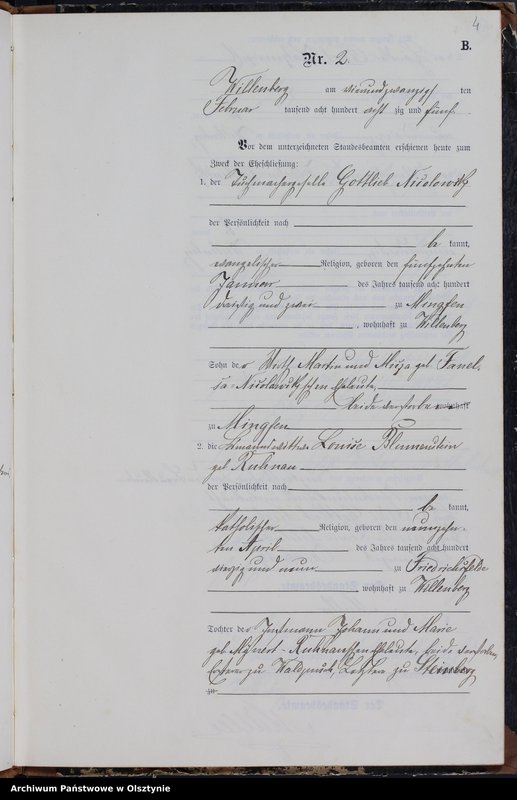 4
B.
Nr. 2.
Willenberg am vierundzwanzigs ten
Februar tausend acht hundert acht zig und fünf
Vor dem unterzeichneten Standesbeamten erschienen heute zum
Zweck der Eheschließung:
1. der Tuchmachergeselle Gottlieb Nicolowitz
der Persönlichkeit nach
be kannt,
evangelischer Religion, geboren den fünfzehnten
Januar des Jahres tausend acht hundert
dreißig und zwei zu Mingfen
, wohnhaft zu Willenberg
Sohn der Wirth Martin und geb
Nicolowitz'schen Eheleute,
beide verstorben wohnhaft
zu Mingfen
2. die Louise Blumenstein
geb. Kuhnau
der Persönlichkeit nach
be kannt,
katholischer Religion, geboren den neunzehn-
ten April des Jahres tausend acht hundert
vierzig und neun zu Friedrichsfelde
, wohnhaft zu Willenberg
Tochter der Instmann Johann und Marie
geb. Kuhnau'schen Eheleute, beide verstorben,
Ersterer zu Letztere zu Steinberg
zu
Archiwum Państwowe w Olsztynie